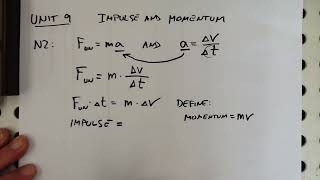 UNIT 9 IMPULSE AND MOMENTUM
N2: Fun = ma AND a = Δv/Δt
Fun = m · Δv/Δt
Fun · Δt = m · Δv DEFINE:
IMPULSE = MOMENTUM = mv